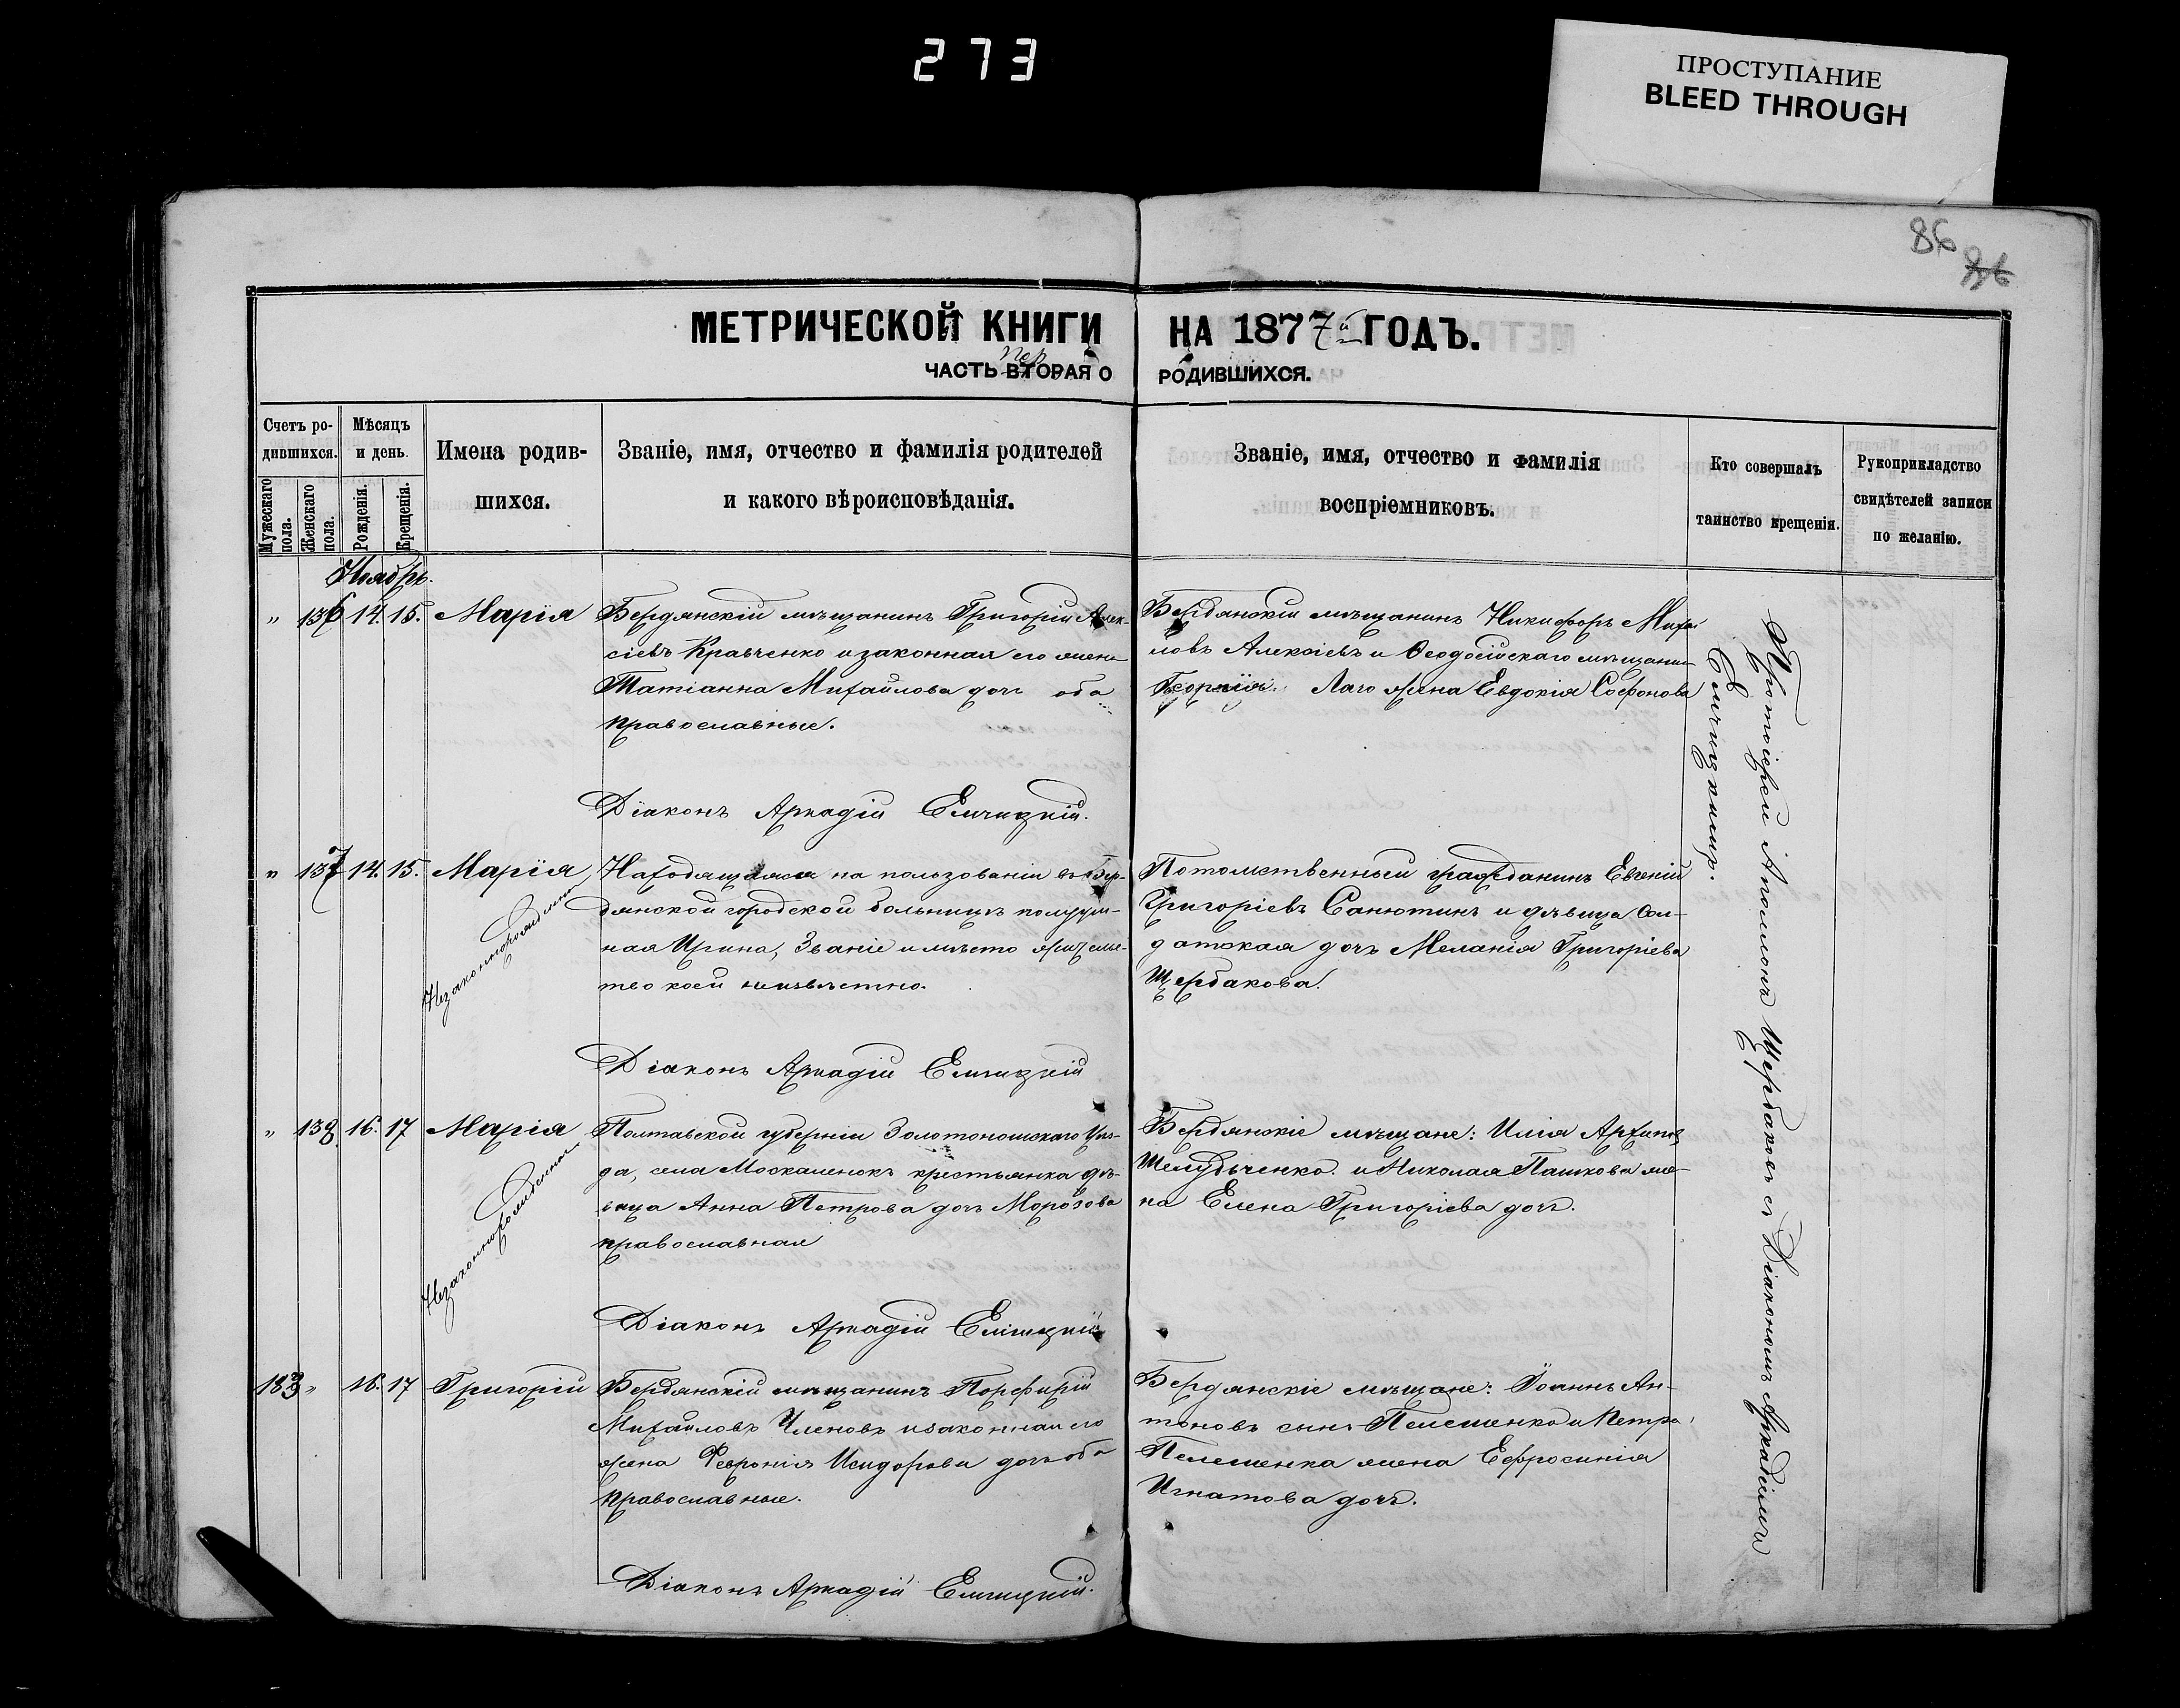 273
ПРОСТУПАНИЕ
BLEED THROUGH
86
МЕТРИЧЕСКОЙ КНИГИ НА 1877й ГОДЪ.
пер
ЧАСТЬ ВТОРАЯ О РОДИВШИХСЯ.
Счетъ ро-
дившихся.
Мужескаго пола.
Женскаго пола.
Мѣсяцъ
и день.
Рожденія.
Крещенія.
Имена родив-
шихся.
Званіе, имя, отчество и фамилія родителей
и какого вѣроисповѣданія.
Званіе, имя, отчество и фамилія
воспріемниковъ.
Кто совершалъ
таинство крещенія.
Рукоприкладство
свидѣтелей записи
по желанію.
Ноябрь.
" 136 14. 15. Марія
Бердянскій мѣщанинъ Григорій Алек-
сіевъ Кравченко и законная его жена
Татіанна Михайлова дочь оба
православные.
Діаконъ Аркадій Елчицкій.
Бердянскій мѣщанинъ Никифоръ Михаи
ловъ Алексіевъ и Ѳеодосійскаго мѣщанина
Георгія Лаго жена Евдокія Софонова
" 137 14. 15. Марія
Незаконнорожденная
Находящаяся на пользованіи въ Бер-
дянской городской больницѣ полуум-
ная Ирина, Званіе и мѣсто жительс-
тво коей неизвѣстно.
Діаконъ Аркадій Елчицкій
Потомственный гражданинъ Евгеній
Григоріевъ Санютинъ и дѣвица Сол-
датская дочь Меланія Григоріева
Щербакова.
" 138. 16. 17 Марія
Незаконнорожденная
Полтавской губерніи Золотоношскаго Уѣз-
да, села Москаленокъ крестьянка дѣ-
вица Анна Петрова дочь Морозова
православная
Діаконъ Аркадій Елчицкій
Бердянскіе мѣщане: Илія Архиповъ
Шелудьченко и Николая Пашкова же-
на Елена Григоріева дочь.
183 " 16. 17 Григорій
Бердянскій мѣщанинъ Порфирій
Михайловъ Членовъ и законная его
жена Февронія Исидорова дочь оба
православные.
Діаконъ Аркадій Елчицкій.
Бердянскіе мѣщане: Іоаннъ Ан-
тоновъ сынъ Пелешенко и Петра
Пелешенка жена Ефросинія
Игнатова дочь.
Протоіерей Аполлонъ Щербаковъ съ Діакономъ Аркадіемъ
Елчицкимъ.